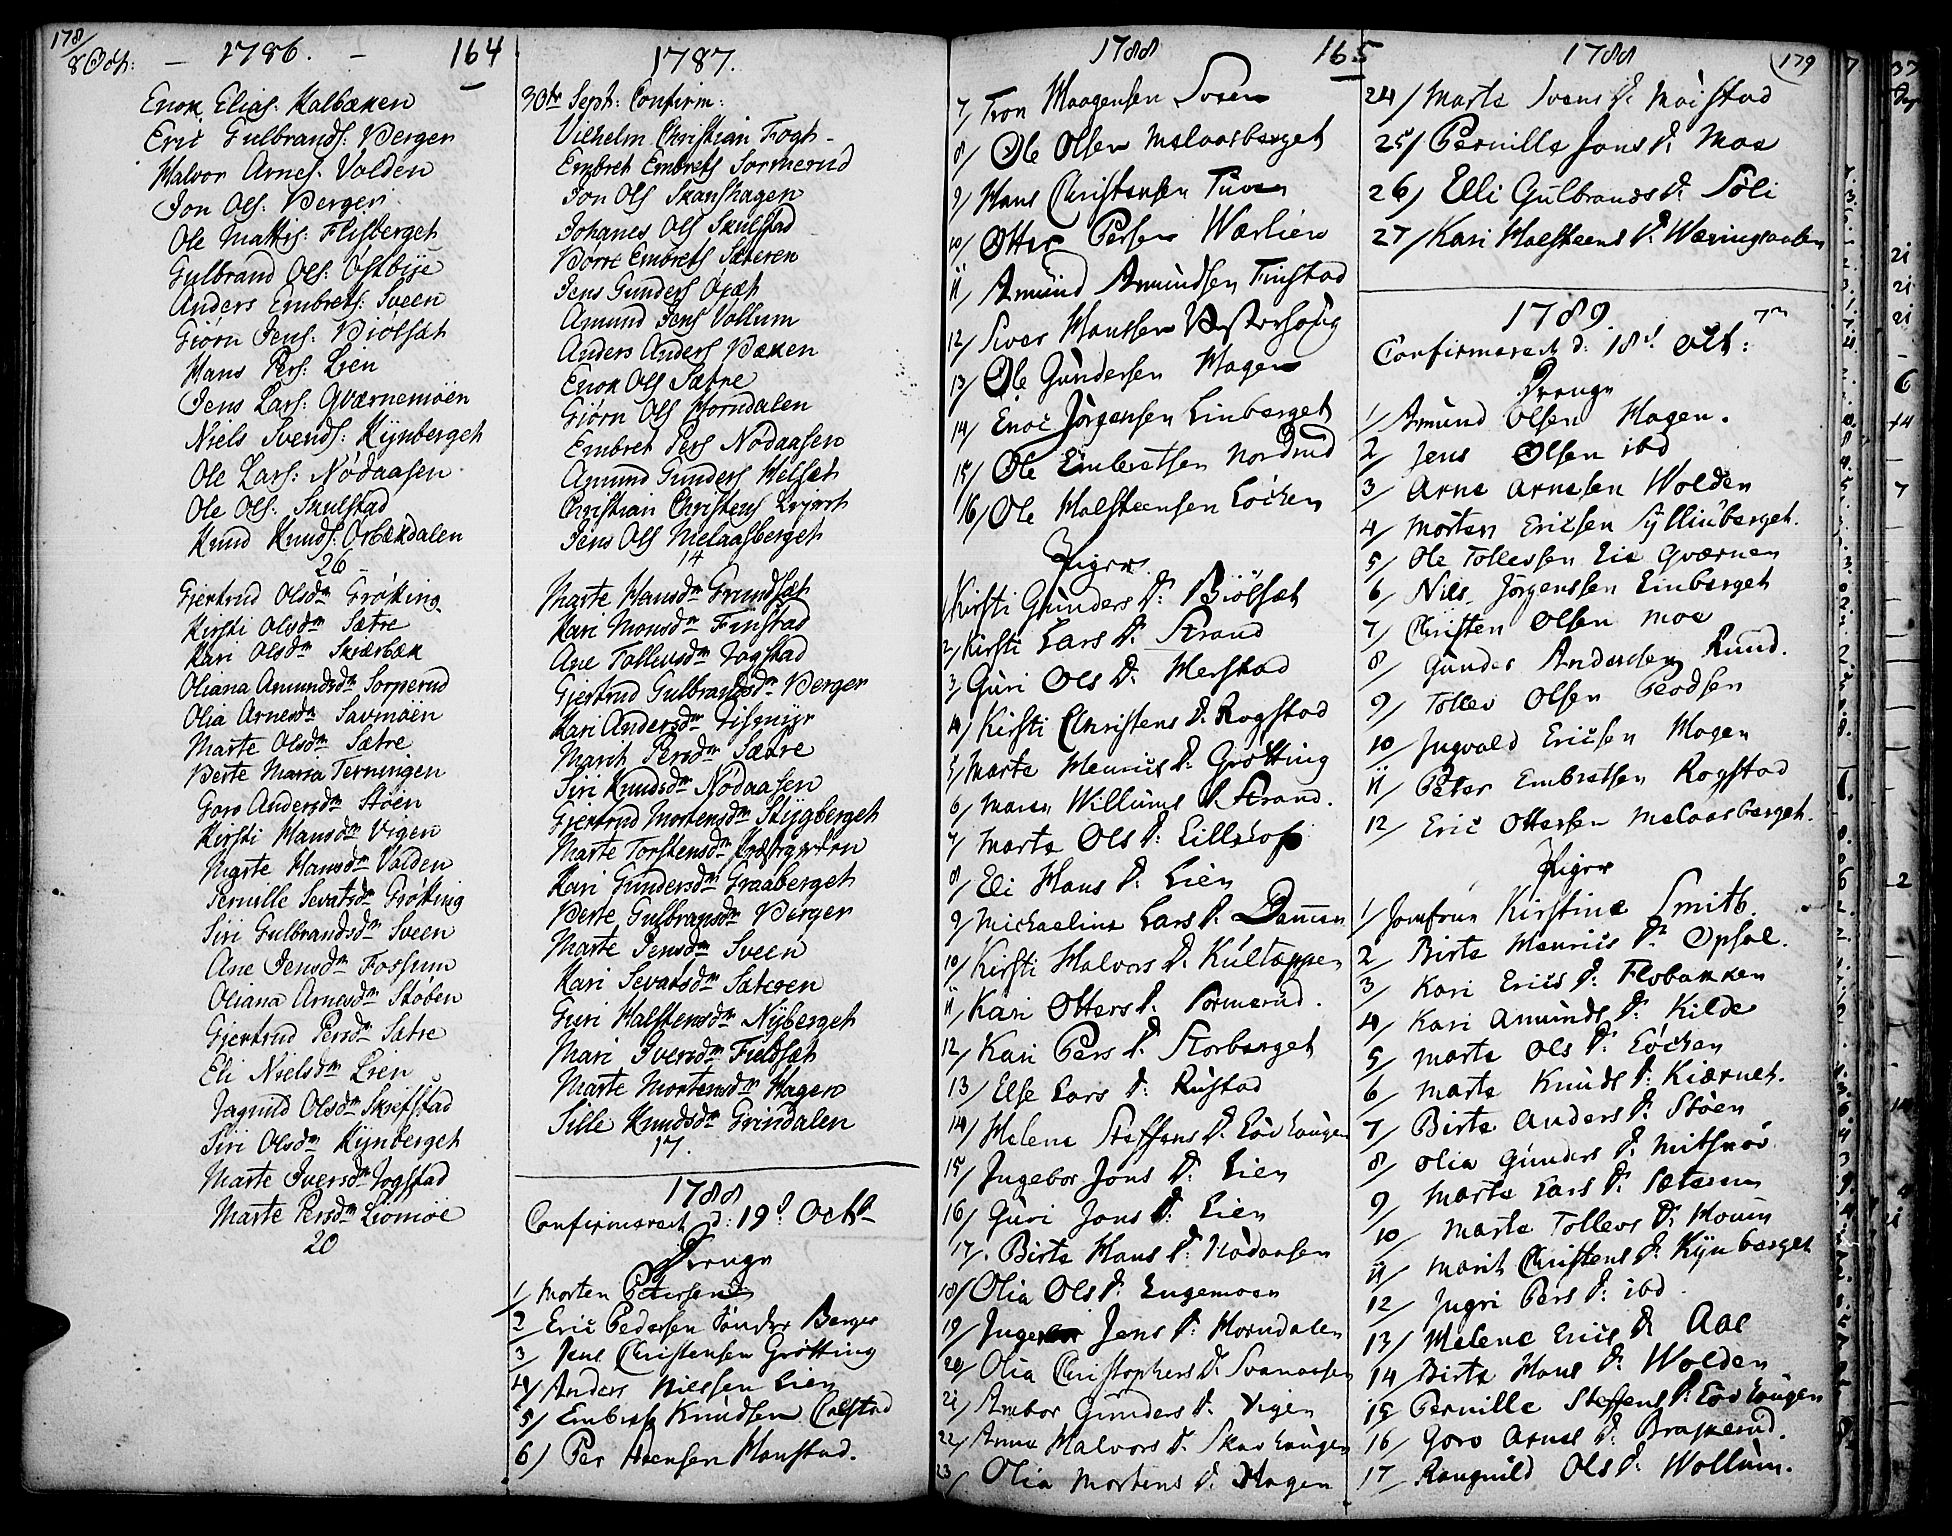 178/
8 Oct: — 1786. — 164
Enok Elias: Kalbækken
Eric Gulbrands: Berger
Halvor Arnes: Volden
Jon Ols: Berger
Ole Mattis: Flisberget
Gulbrand Ols: Ostbye
Anders Embrets: Sveen
Giörn Jens: Biölsæt
Hans Pers: Lien
Jens Lars: Qværnemöen
Niels Svends: Kynberget
Ole Lars: Nodaasen
Ole Ols: Skulstad
Knud Knuds: Orbekdalen
26
Gjertrud Olsdr Grötting
Kirsti Olsdr Sætre
Kari Olsdr Skiærbæk
Oliana Amundsdr Sorperud
Olia Arnesdr Savmöen
Marte Olsdr Sætre
Berte Maria Terningen
Goro Andersdr Stöen
Kirsti Hansdr Vigen
Marte Hansdr Volden
Pernille Sevatsdr Grötting
Siri Gulbrandsdr Sveen
Ane Jensdr Fossum
Oliana Arnesdr Stöben
Gjertrud Persdr Sætre
Eli Nielsdr Lien
Jagnild Olsdr Skiefstad
Siri Olsdr Kynberget
Marte Iversdr Jogstad
Marte Persdr Liomöe
20
1787.
30te Sept: Confirm:
Vilhelm Christian Fogh
Embret Embrets Sormerud
Jon Ols Skanshagen
Johanes Ols Skulstad
Borre Embrets Sæteren
Jens Gunders Oxæt
Amund Jens Vollum
Anders Anders Bækken
Enok Ols Sætre
Giörn Ols Horndalen
Embret Pers Nodaasen
Amund Gunders Helsæt
Christian Christens
Jens Ols Melaasberget
14
Marte Hansdr Grundsæt
Kari Monsdr Finstad
Ane Tollevsdr Jogstad
Gjertrud Gulbrandsdr Berger
Kari Andersdr
Marit Persdr Sætre
Siri Knudsdr Nodaasen
Gjertrud Mortensdr Stygberget
Marte Torstensdr
Kari Gundersdr Graaberget
Berte Gulbrandsdr Berger
Marte Jensdr Sveen
Kari Sevatsdr Sæteren
Guri Halstensdr Nyberget
Mari Iversdr Fuldsæt
Marte Mortensdr Hagen
Sille Knudsdr Grindalen
17.
1788
Confirmeret d: 19d Octb
Drenge
1/ Morten Petersen
2 Eric Pedersen Sönder Berger
3 Jens Christensen Grötting
4/ Anders Nielssen Lien
5/ Embret Knudsen Colstad
6/ Per Hansen Hanstad.
1788 165
7/ Tron Haagensen Soren
8/ Ole Olsen Melaasberget
9/ Hans Christensen Tuven
10/ Otter Persen Wærlien
11 Amund Amundsen Finstad
12/ Iver Hanssen Westerhoug
13/ Ole Gundersen Hagen
14/ Enoc Jörgensen Linberget
15/ Ole Embretsen Nordrud
16/ Ole Halsteensen Löcken
Piger
1 Kirsti Gunders D: Biölsæt
2 Kirsti Lars D. Strand
3 Guri Ols D. Herstad
4/ Kirsti Christens D. Rogstad
5/ Marte Henrics D: Grötting
6/ Maren Willums D. Strand.
7/ Marte Ols D: Lillehof
8/ Eli Hans D. Lien
9/ Michaeline Lars D. Dammen
10/ Kirsti Halvors D. Kultæppen
11 Kari Otters D. Sormerud.
12/ Kari Pers D. Storberget
13/ Else Lars D: Rustad
14/ Helena Steffens D. Löchougen
15/ Ingebor Jons D. Lien
16/ Guri Jons D: Lien
17/. Birte Hans D: Nodaasen
18/ Olia Ols D. Engemoen
19/ Inge Jens D. Horndalen
20/ Olia Christophers D. Svenaasen
21/ Ambor Gunders D. Vigen
22/ Anna Halvors D. Skovhougen
23/ Olia Mortens D. Hagen
1788 179
24/ Marte Svens D. Moistad
25/ Pernille Jons D. Moe
26/ Elli Gulbrands D. Söli
27/ Kari Halsteens D. Wæringsaalen
1789.
Confirmeret d: 18d Octb:
Drenge
1/ Amund Olsen Hagen.
2/ Jens Olsen ibd
3/ Arne Arnesen Wolden
4/ Morten Ericsen Syllinberget.
5/ Ole Tollevsen Lie Qværnen
6/ Nils Jörgenssen Linberget
7/ Christen Olsen Moe
8/ Gunder Anderssen Rund.
9/ Tollev Olsen
10 Ingvald Ericsen Hagen
11/ Peter Embretsen Rogstad
12/ Eric Ottersen Melaasberget.
Piger
1/ Jomfrue Kirstine Smith.
2/ Birte Henrics D. Opsal.
3/ Kari Erics D: Flobakken
4/ Kari Amunds D: Kilde
5/ Marte Ols D: Löcken
6/ Marte Knuds D: Kiærnet.
7/ Birte Anders D. Stöen
8/ Olia Gunders D: Mitskov
9/ Marte Lars D. Sæteren
10/ Marte Tollevs D. Houm
11/ Marit Christens D. Kynberget
12/ Ingri Pers D: ibd.
13/ Helene Erics D Aas
14/ Birte Hans D. Wolden
15/ Pernille Steffens D. Löchougen
16/ Goro Arnes D. Braskerud.
17/ Rangnild Ols D. Wollum.